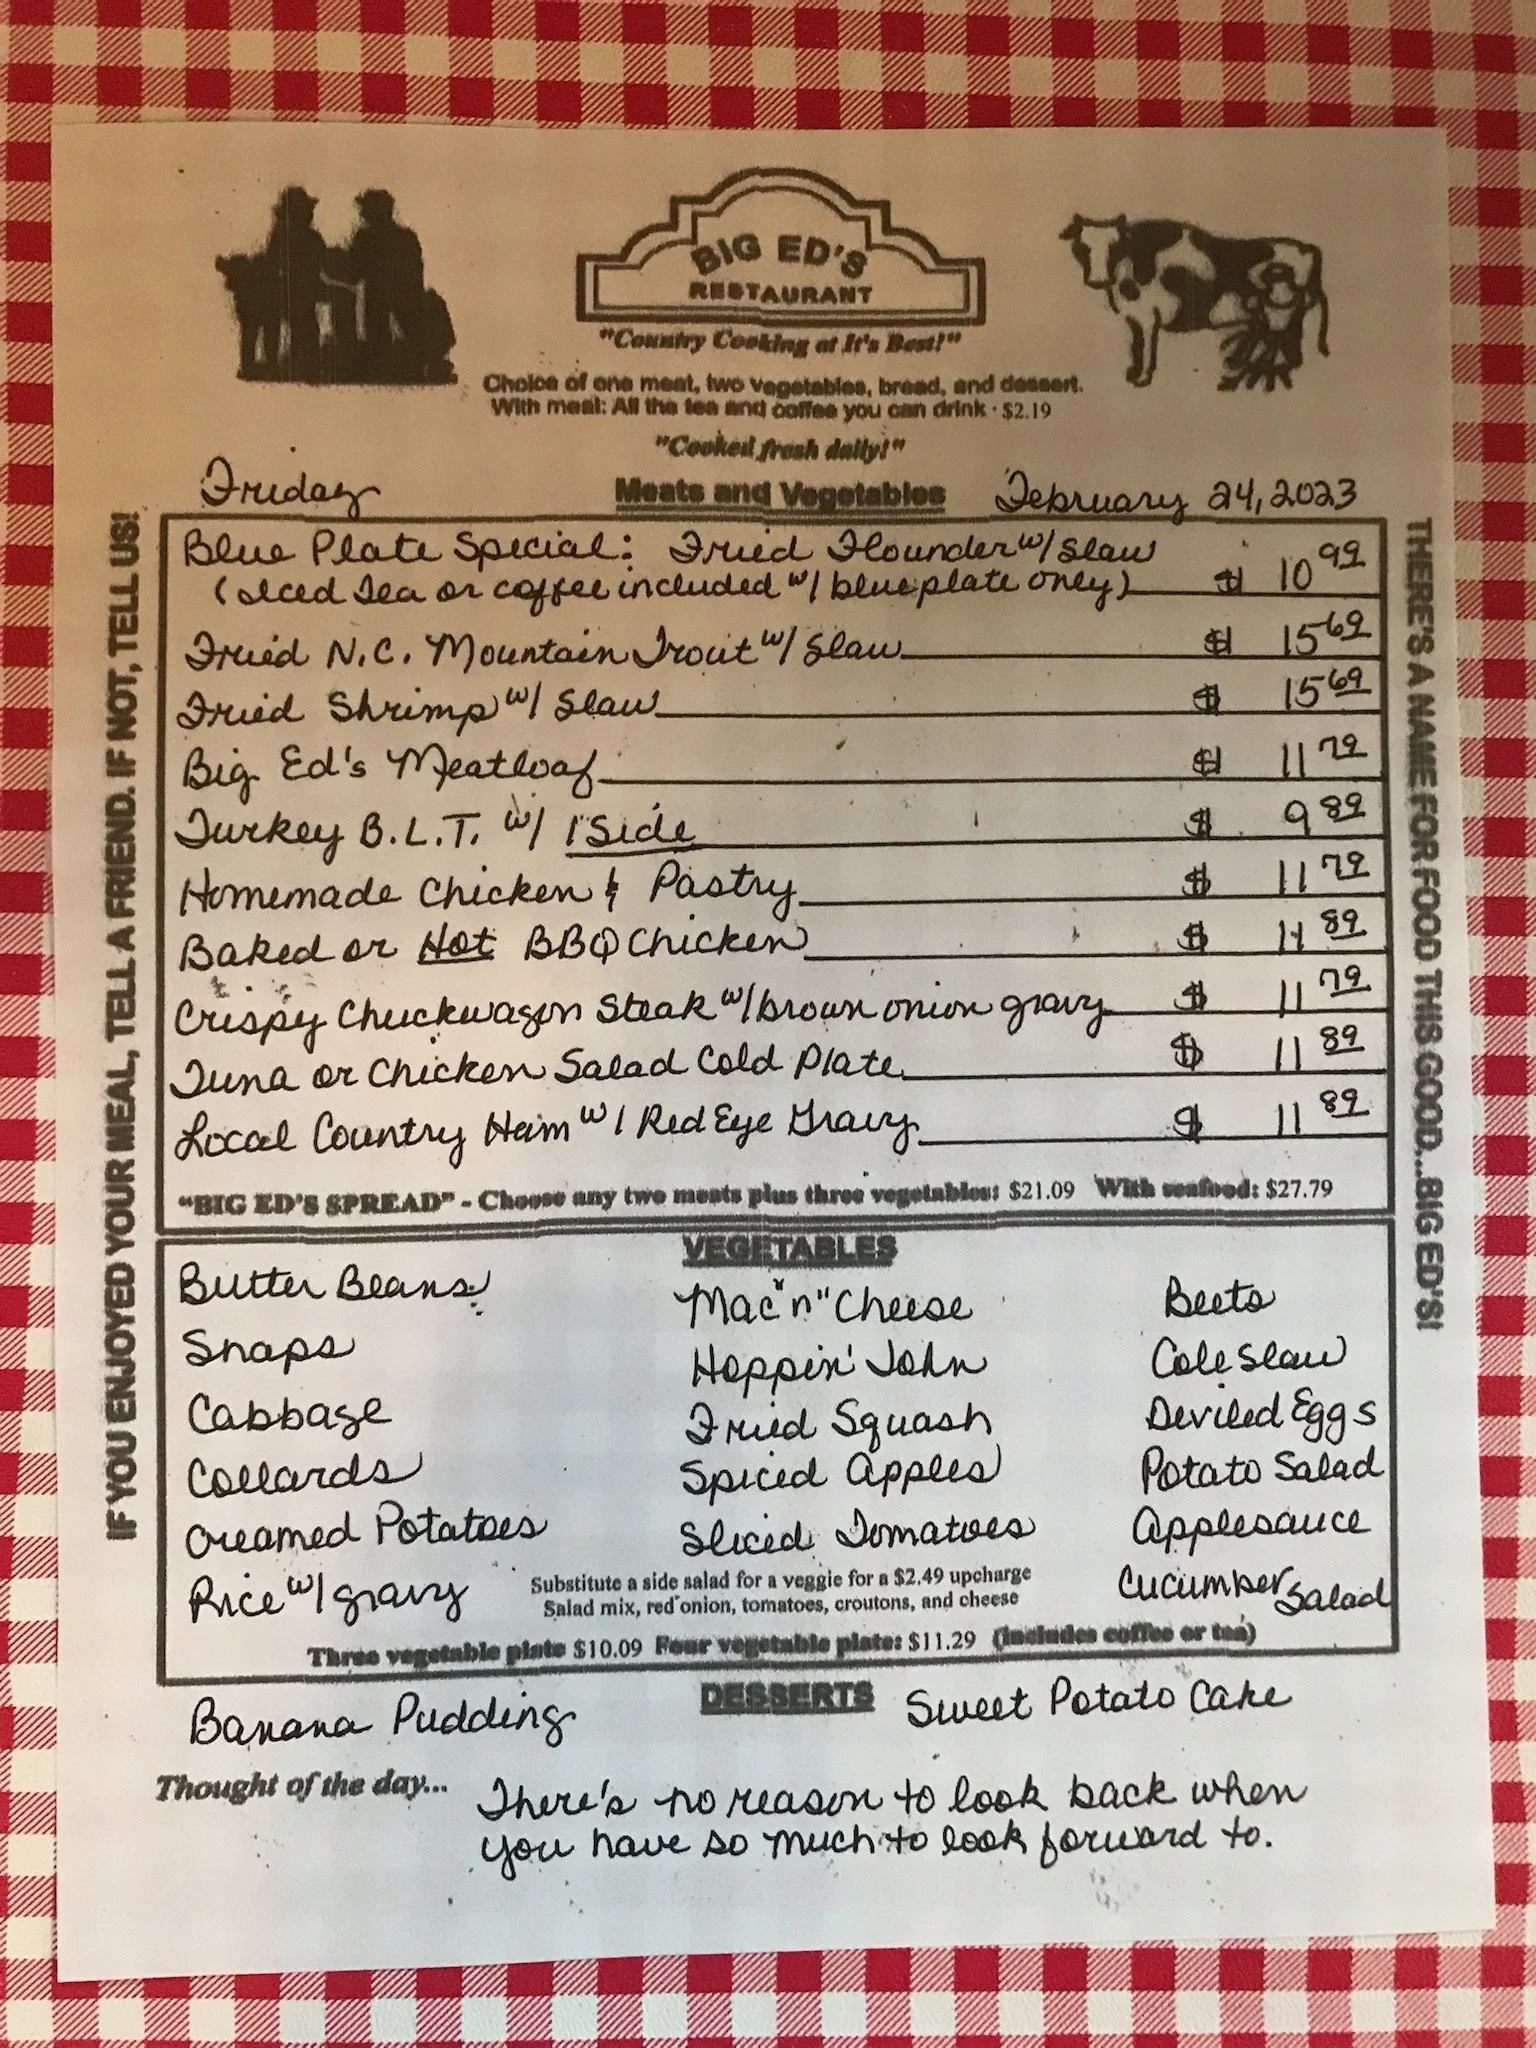 BIG ED'S
RESTAURANT
"Country Cooking at It's Best!"
Choice of one meat, two vegetables, bread, and dessert.
With meal: All the tea and coffee you can drink · $2.19
"Cooked fresh daily!"
Friday Meats and Vegetables February 24, 2023
IF YOU ENJOYED YOUR MEAL, TELL A FRIEND. IF NOT, TELL US!
Blue Plate Special: Fried Flounder w/ Slaw
(Iced Tea or coffee included w/ blue plate only) $ 10 99
Fried N.C. Mountain Trout w/ Slaw $ 15 69
Fried Shrimp w/ Slaw $ 15 69
Big Ed's Meatloaf $ 11 79
Turkey B.L.T. w/ 1 Side $ 9 89
Homemade Chicken & Pastry $ 11 79
Baked or Hot BBQ Chicken $ 11 89
Crispy Chuckwagon Steak w/ brown onion gravy $ 11 79
Tuna or Chicken Salad Cold Plate $ 11 89
Local Country Ham w/ Red Eye Gravy $ 11 89
"BIG ED'S SPREAD" - Choose any two meats plus three vegetables: $21.09 With seafood: $27.79
THERE'S A NAME FOR FOOD THIS GOOD...BIG ED'S!
VEGETABLES
Butter Beans Mac "n" Cheese Beets
Snaps Hoppin' John Cole Slaw
Cabbage Fried Squash Deviled Eggs
Collards Spiced Apples Potato Salad
Creamed Potatoes Sliced Tomatoes Applesauce
Rice w/ gravy Substitute a side salad for a veggie for a $2.49 upcharge Cucumber Salad
Salad mix, red onion, tomatoes, croutons, and cheese
Three vegetable plate $10.09 Four vegetable plate: $11.29 (includes coffee or tea)
DESSERTS
Banana Pudding Sweet Potato Cake
Thought of the day... There's no reason to look back when
you have so much to look forward to.